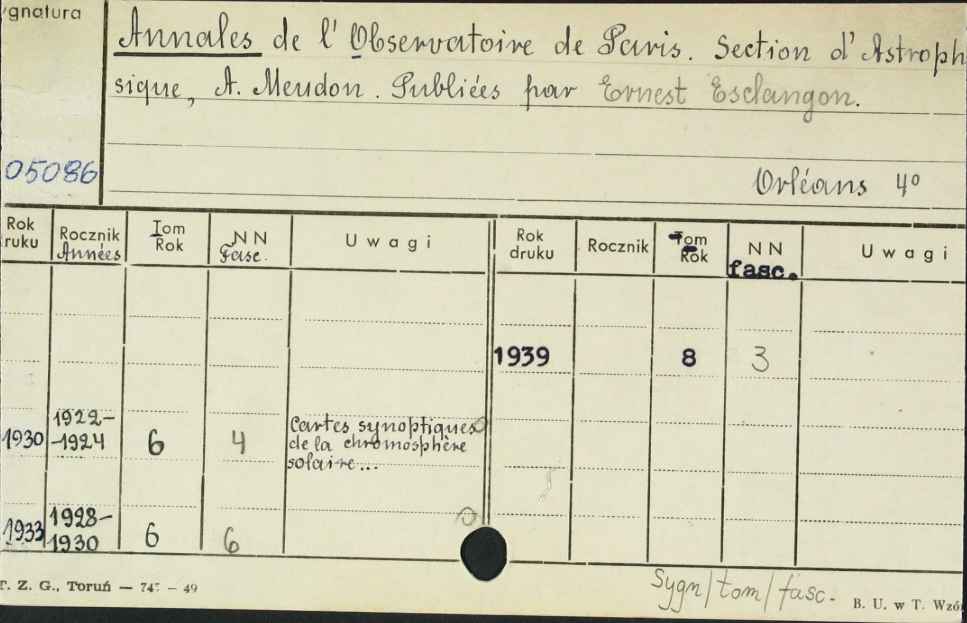 gnatura
Annales de l'Observatoire de Paris. Section d'Astroph
sique, A. Meudon. Publiées par Ernest Esclangon.
05086
Orléans 4º
Rok
ruku
Rocznik
Années
Tom
Rok
NN
Fasc.
Uwagi
Rok
druku
Rocznik
Tom
Rok
NN
fasc.
Uwagi
1939 8 3
1930 1922-
-1924 6 4 Cartes synoptiques
de la chromosphère
solaire...
1933 1928-
1930 6 6
T. Z. G., Toruń — 747 — 49
Sygn/tom/fasc.
B. U. w T. Wzór